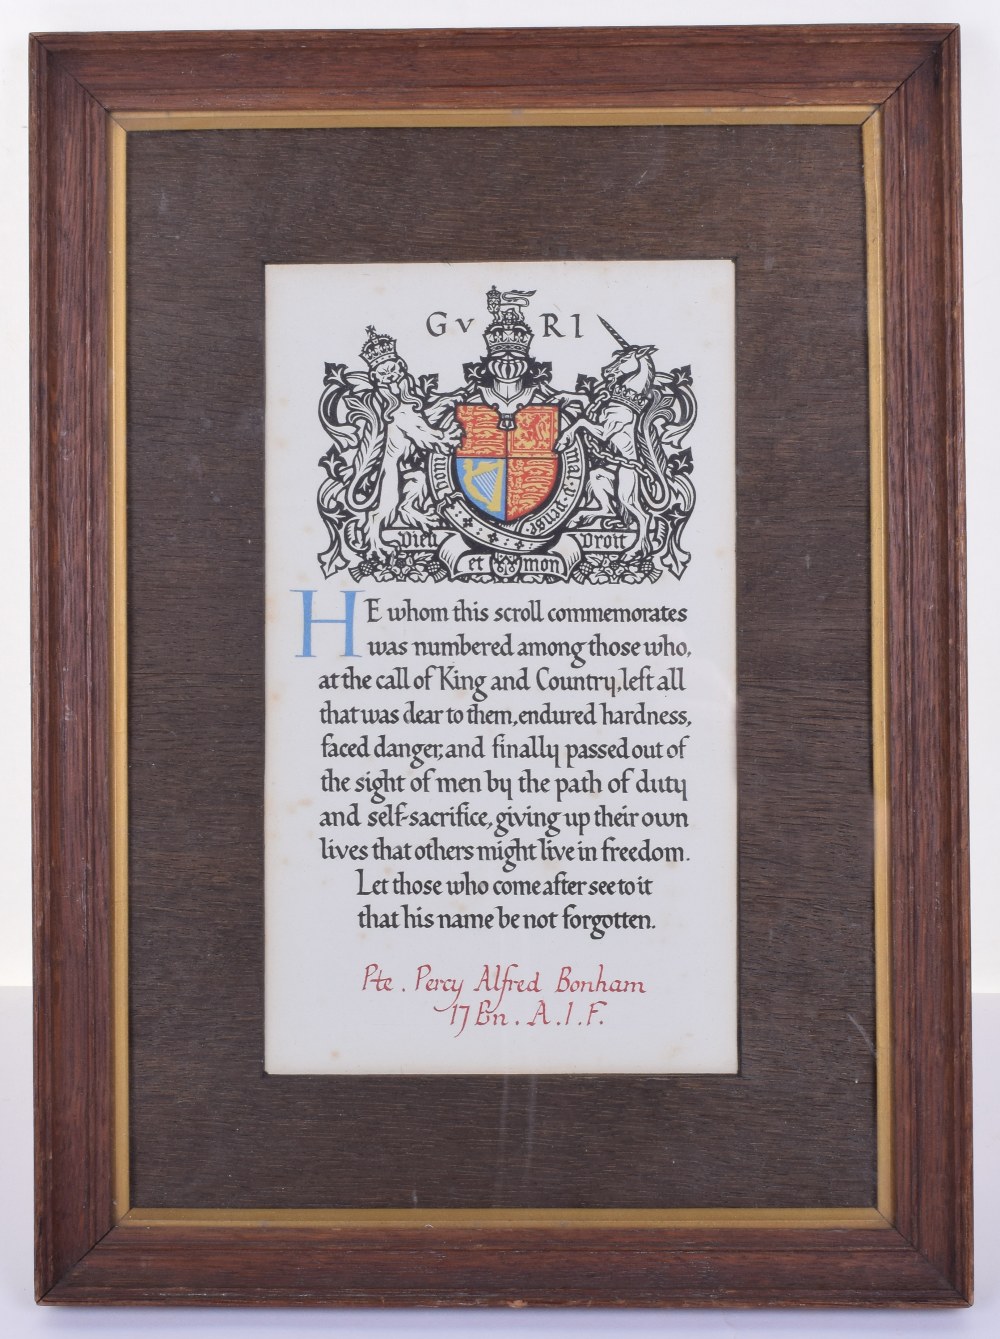 G V RI
Honi
mal y pense
Dieu
Droit
et mon
HE whom this scroll commemorates
was numbered among those who,
at the call of King and Country, left all
that was dear to them, endured hardness,
faced danger, and finally passed out of
the sight of men by the path of duty
and self-sacrifice, giving up their own
lives that others might live in freedom.
Let those who come after see to it
that his name be not forgotten.
Pte. Percy Alfred Bonham
17 Bn. A.I.F.